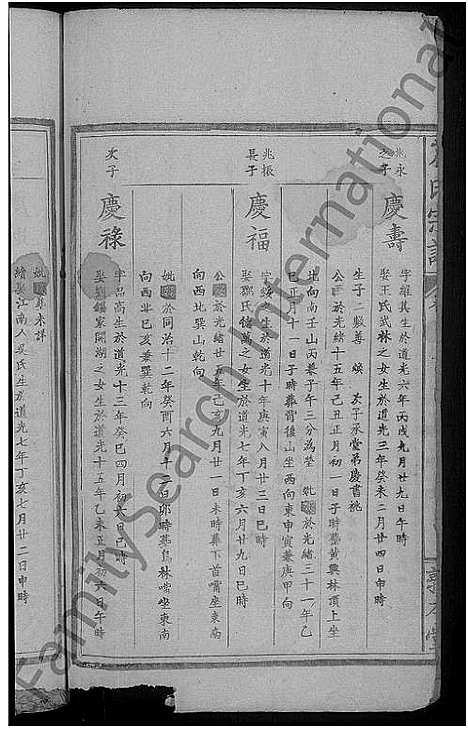 氏宗譜
兆永
之子
慶壽
字雄其生於道光六年丙戌九月廿九日午時
娶王氏武林之女生於道光三年癸未二月廿四日申時
生子二毅善 煥 次子承堂弟慶書祧
公 於光緒十五年己丑正月初一日子時葬黃興林頂上坐
北向南子山丙兼子午三分為塋 妣 於光緒三十一年乙
巳正月十一日子時葬背後山坐西向東申寅兼庚甲向
兆振
長子
慶福
字 生於道光十年庚寅八月廿三日巳時
娶鄭氏 萬之女生於道光七年丁亥六月廿九日巳時
公 於光緒廿五年己亥九月廿一日未時葬下首嘴坐東南
向西北巽山乾向
妣 於同治十二年癸酉六月 二日卯時葬烏林嘴坐東南
向西北巳亥兼巽乾向
次子
慶祿
字品高生於道光十三年癸巳四月初六日巳時
娶劉 家開湖之女生於道光十五年乙未正月初六日午時
妣 墓未詳
續娶江南人吳氏生於道光七年丁亥七月廿二日申時
FamilySearch International